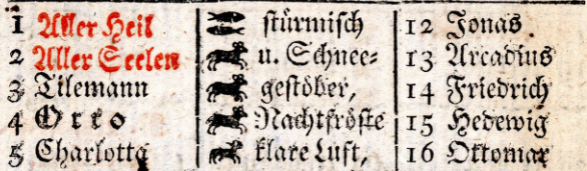 1 Aller Heil stürmisch 12 Jonas
2 Aller Seelen u. Schnee- 13 Arcadius
3 Tilemann gestöber, 14 Friedrich
4 Otto Nachtfröste 15 Hedewig
5 Charlotta klare Luft, 16 Ottomar